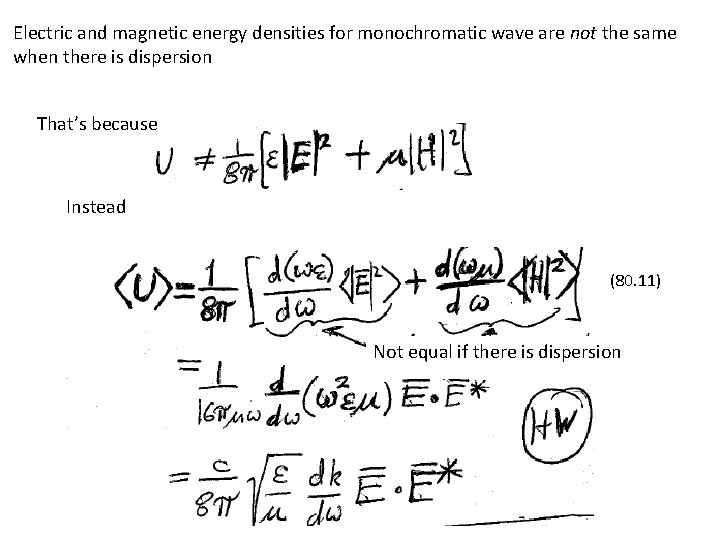 Electric and magnetic energy densities for monochromatic wave are not the same
when there is dispersion
That’s because
U ≠ 1/8π [ε|E|² + μ|H|²]
Instead
⟨U⟩ = 1/8π [ d(ωε)/dω ⟨|E|²⟩ + d(ωμ)/dω ⟨|H|²⟩ ] (80.11)
Not equal if there is dispersion
= 1/16πμω d/dω (ω²εμ) E̅ · E̅*
HW
= c/8π √(ε/μ) dk/dω E̅ · E̅*